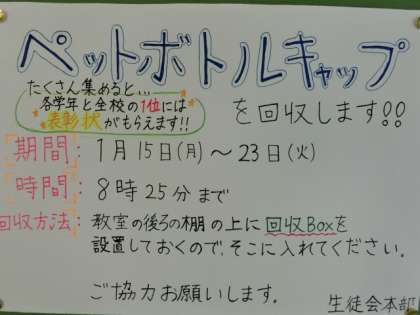 ペットボトルキャップ
たくさん集めると...
各学年と全校の1位には
表彰状がもらえます!!
を回収します!!
期間:1月15日(月)〜23日(火)
時間:8時25分まで
回収方法:教室の後ろの棚の上に回収Boxを
設置しておくので、そこに入れてください。
ご協力お願いします。
生徒会本部